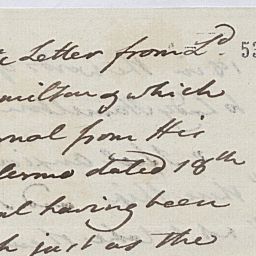 Letter from Ld 53
milton of which
nal from His
lermo dated 18th
al having been
h just as the